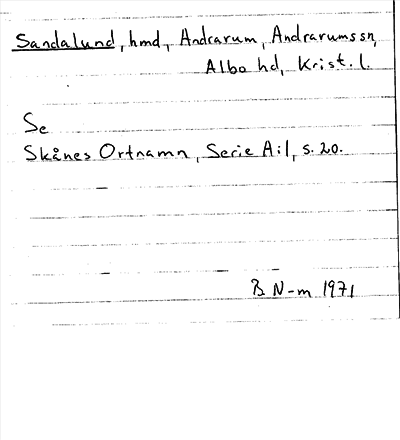 Sandalund, hmd, Andrarum, Andrarums sn,
Albo hd, Krist. l.
Se
Skånes Ortnamn, Serie A:1, s. 20.
B N-m 1971